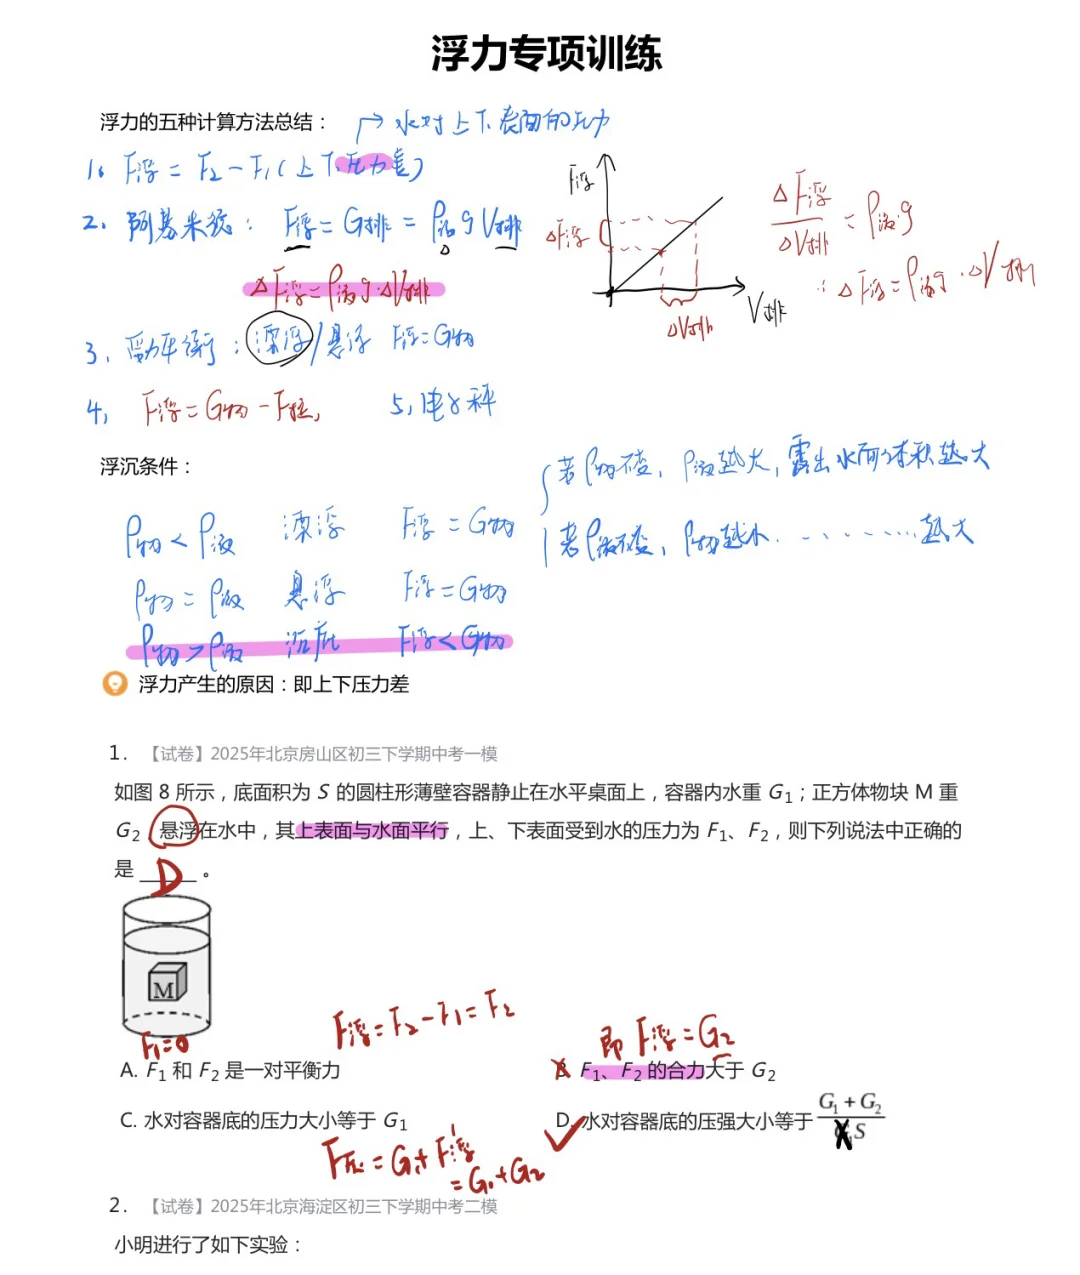 浮力专项训练
浮力的五种计算方法总结： → 水对上下表面的压力
1. F浮 = F2 - F1(上下压力差)
2. 阿基米德： F浮 = G排 = ρ液 g V排
ΔF浮 = ρ液 g·ΔV排
F浮
ΔF浮
ΔV排
V排
ΔF浮 / ΔV排 = ρ液 g
∴ ΔF浮 = ρ液 g·ΔV排
3. 受力平衡：漂浮/悬浮 F浮 = G物
4, F浮 = G物 - F拉, 5, 电子秤
浮沉条件：
若ρ物不变, ρ液越大, 露出水面体积越大
若ρ液不变, ρ物越小 ········· 越大
ρ物 < ρ液 漂浮 F浮 = G物
ρ物 = ρ液 悬浮 F浮 = G物
ρ物 > ρ液 沉底 F浮 < G物
浮力产生的原因：即上下压力差
1. 【试卷】2025年北京房山区初三下学期中考一模
如图 8 所示，底面积为 S 的圆柱形薄壁容器静止在水平桌面上，容器内水重 G1；正方体物块 M 重
G2，悬浮在水中，其上表面与水面平行，上、下表面受到水的压力为 F1、F2，则下列说法中正确的
是 D 。
M
F1=0
F浮 = F2 - F1 = F2
即 F浮 = G2
A. F1 和 F2 是一对平衡力
B. F1、F2 的合力大于 G2
C. 水对容器底的压力大小等于 G1
D. 水对容器底的压强大小等于 (G1 + G2) / S
F压 = G1 + F浮'
= G1 + G2
2. 【试卷】2025年北京海淀区初三下学期中考二模
小明进行了如下实验：